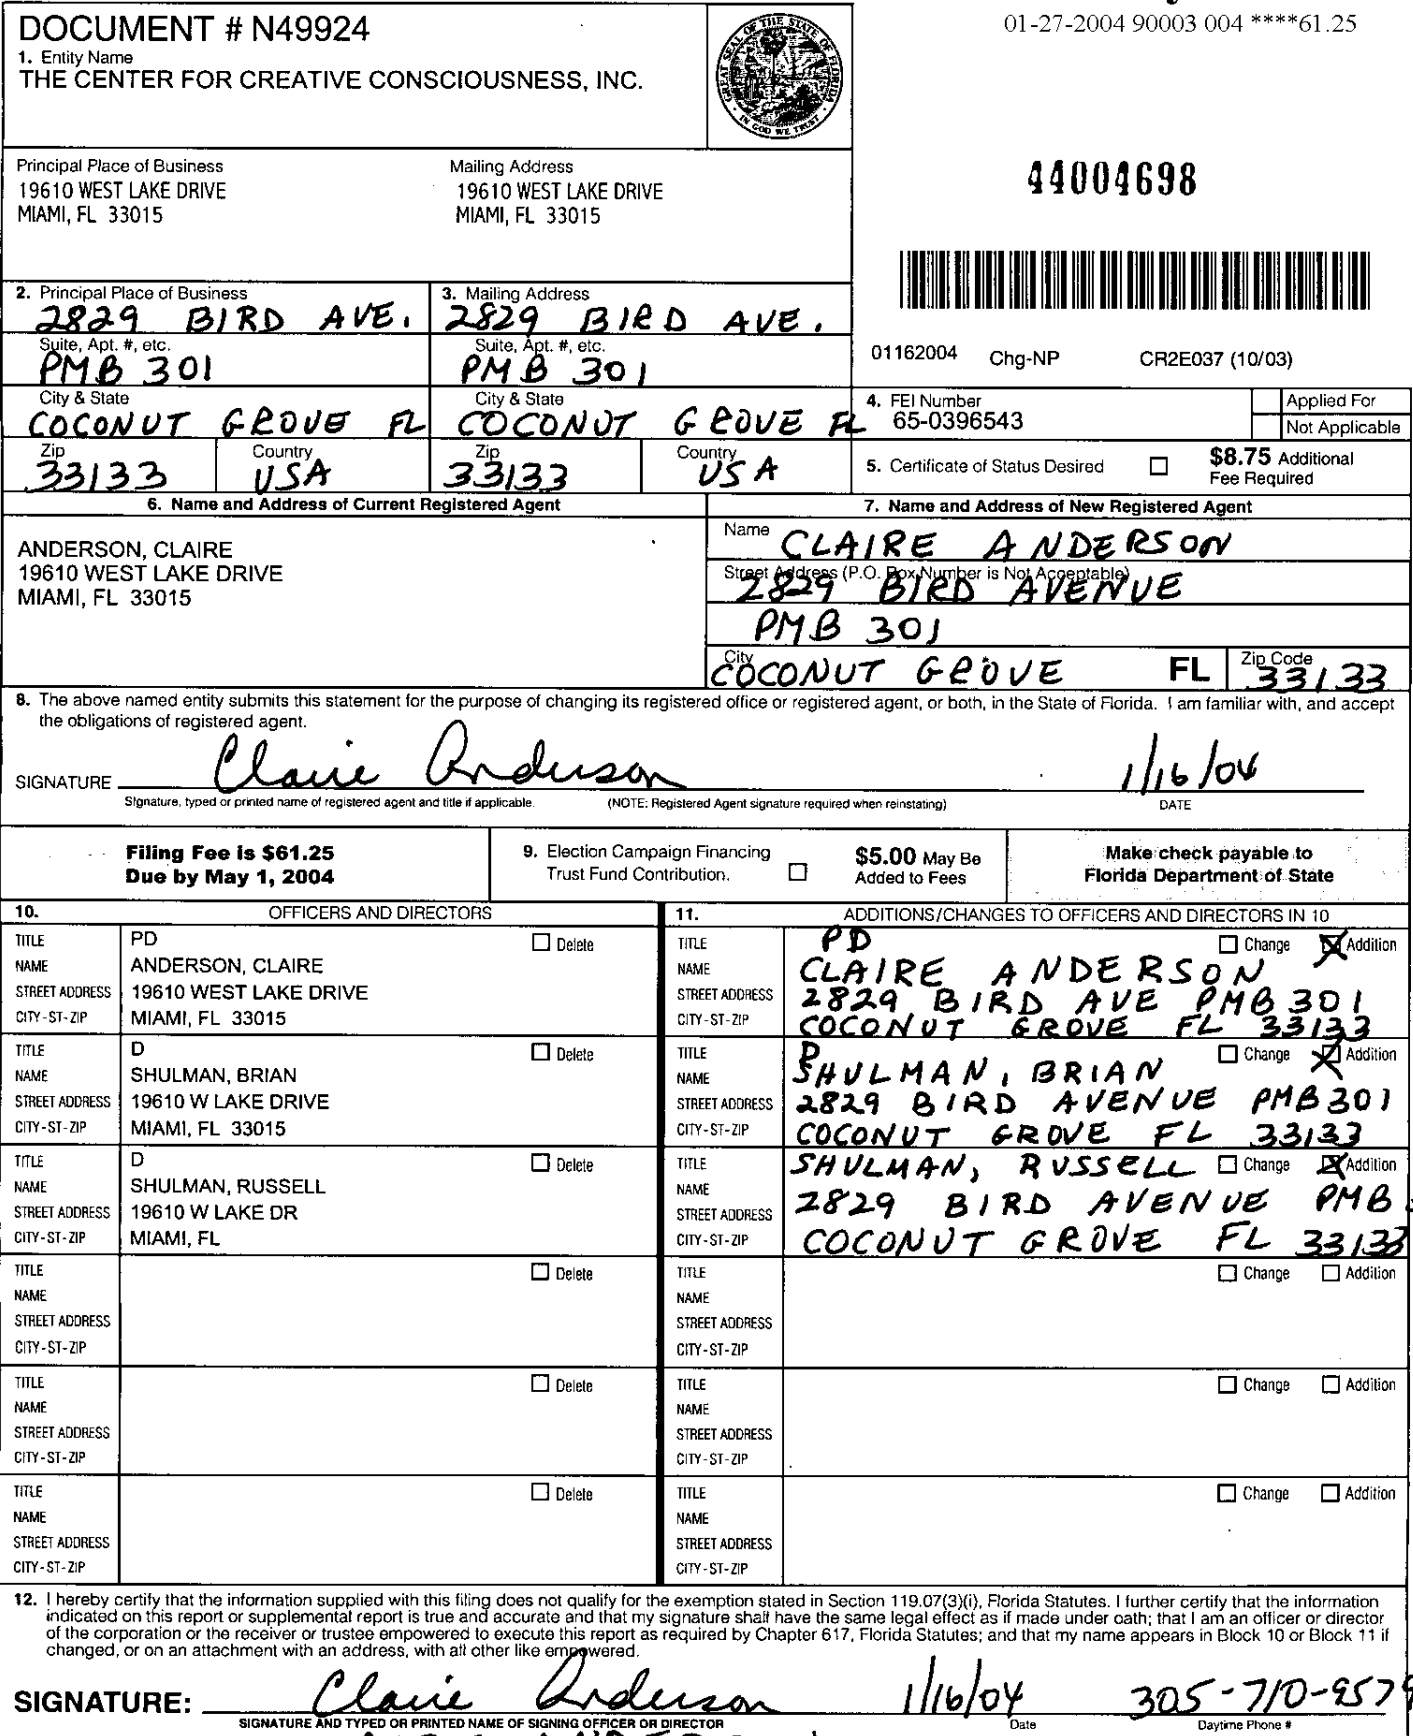 01-27-2004 90003 004 ****61.25
DOCUMENT # N49924
1. Entity Name
THE CENTER FOR CREATIVE CONSCIOUSNESS, INC.
GREAT SEAL OF THE STATE OF FLORIDA
IN GOD WE TRUST
Principal Place of Business
19610 WEST LAKE DRIVE
MIAMI, FL 33015
Mailing Address
19610 WEST LAKE DRIVE
MIAMI, FL 33015
44004698
2. Principal Place of Business
2829 BIRD AVE.
Suite, Apt. #, etc.
PMB 301
City & State
COCONUT GROVE FL
Zip
33133
Country
USA
3. Mailing Address
2829 BIRD AVE.
Suite, Apt. #, etc.
PMB 301
City & State
COCONUT GROVE FL
Zip
33133
Country
USA
01162004 Chg-NP CR2E037 (10/03)
4. FEI Number
65-0396543
Applied For
Not Applicable
5. Certificate of Status Desired
$8.75 Additional
Fee Required
6. Name and Address of Current Registered Agent
ANDERSON, CLAIRE
19610 WEST LAKE DRIVE
MIAMI, FL 33015
7. Name and Address of New Registered Agent
Name
CLAIRE ANDERSON
Street Address (P.O. Box Number is Not Acceptable)
2829 BIRD AVENUE
PMB 301
City
COCONUT GROVE FL
Zip Code
33133
8. The above named entity submits this statement for the purpose of changing its registered office or registered agent, or both, in the State of Florida. I am familiar with, and accept
the obligations of registered agent.
SIGNATURE Claire Anderson 1/16/04
Signature, typed or printed name of registered agent and title if applicable. (NOTE: Registered Agent signature required when reinstating) DATE
Filing Fee is $61.25
Due by May 1, 2004
9. Election Campaign Financing
Trust Fund Contribution.
$5.00 May Be
Added to Fees
Make check payable to
Florida Department of State
10. OFFICERS AND DIRECTORS
TITLE PD Delete
NAME ANDERSON, CLAIRE
STREET ADDRESS 19610 WEST LAKE DRIVE
CITY-ST-ZIP MIAMI, FL 33015
TITLE D Delete
NAME SHULMAN, BRIAN
STREET ADDRESS 19610 W LAKE DRIVE
CITY-ST-ZIP MIAMI, FL 33015
TITLE D Delete
NAME SHULMAN, RUSSELL
STREET ADDRESS 19610 W LAKE DR
CITY-ST-ZIP MIAMI, FL
TITLE Delete
NAME
STREET ADDRESS
CITY-ST-ZIP
TITLE Delete
NAME
STREET ADDRESS
CITY-ST-ZIP
TITLE Delete
NAME
STREET ADDRESS
CITY-ST-ZIP
11. ADDITIONS/CHANGES TO OFFICERS AND DIRECTORS IN 10
TITLE PD Change Addition
NAME CLAIRE ANDERSON
STREET ADDRESS 2829 BIRD AVE PMB 301
CITY-ST-ZIP COCONUT GROVE FL 33133
TITLE D Change Addition
NAME SHULMAN, BRIAN
STREET ADDRESS 2829 BIRD AVENUE PMB 301
CITY-ST-ZIP COCONUT GROVE FL 33133
TITLE SHULMAN, RUSSELL Change Addition
NAME
STREET ADDRESS 2829 BIRD AVENUE PMB
CITY-ST-ZIP COCONUT GROVE FL 33133
TITLE Change Addition
NAME
STREET ADDRESS
CITY-ST-ZIP
TITLE Change Addition
NAME
STREET ADDRESS
CITY-ST-ZIP
TITLE Change Addition
NAME
STREET ADDRESS
CITY-ST-ZIP
12. I hereby certify that the information supplied with this filing does not qualify for the exemption stated in Section 119.07(3)(i), Florida Statutes. I further certify that the information
indicated on this report or supplemental report is true and accurate and that my signature shall have the same legal effect as if made under oath; that I am an officer or director
of the corporation or the receiver or trustee empowered to execute this report as required by Chapter 617, Florida Statutes; and that my name appears in Block 10 or Block 11 if
changed, or on an attachment with an address, with all other like empowered.
SIGNATURE: Claire Anderson 1/16/04 305-710-9579
SIGNATURE AND TYPED OR PRINTED NAME OF SIGNING OFFICER OR DIRECTOR Date Daytime Phone #